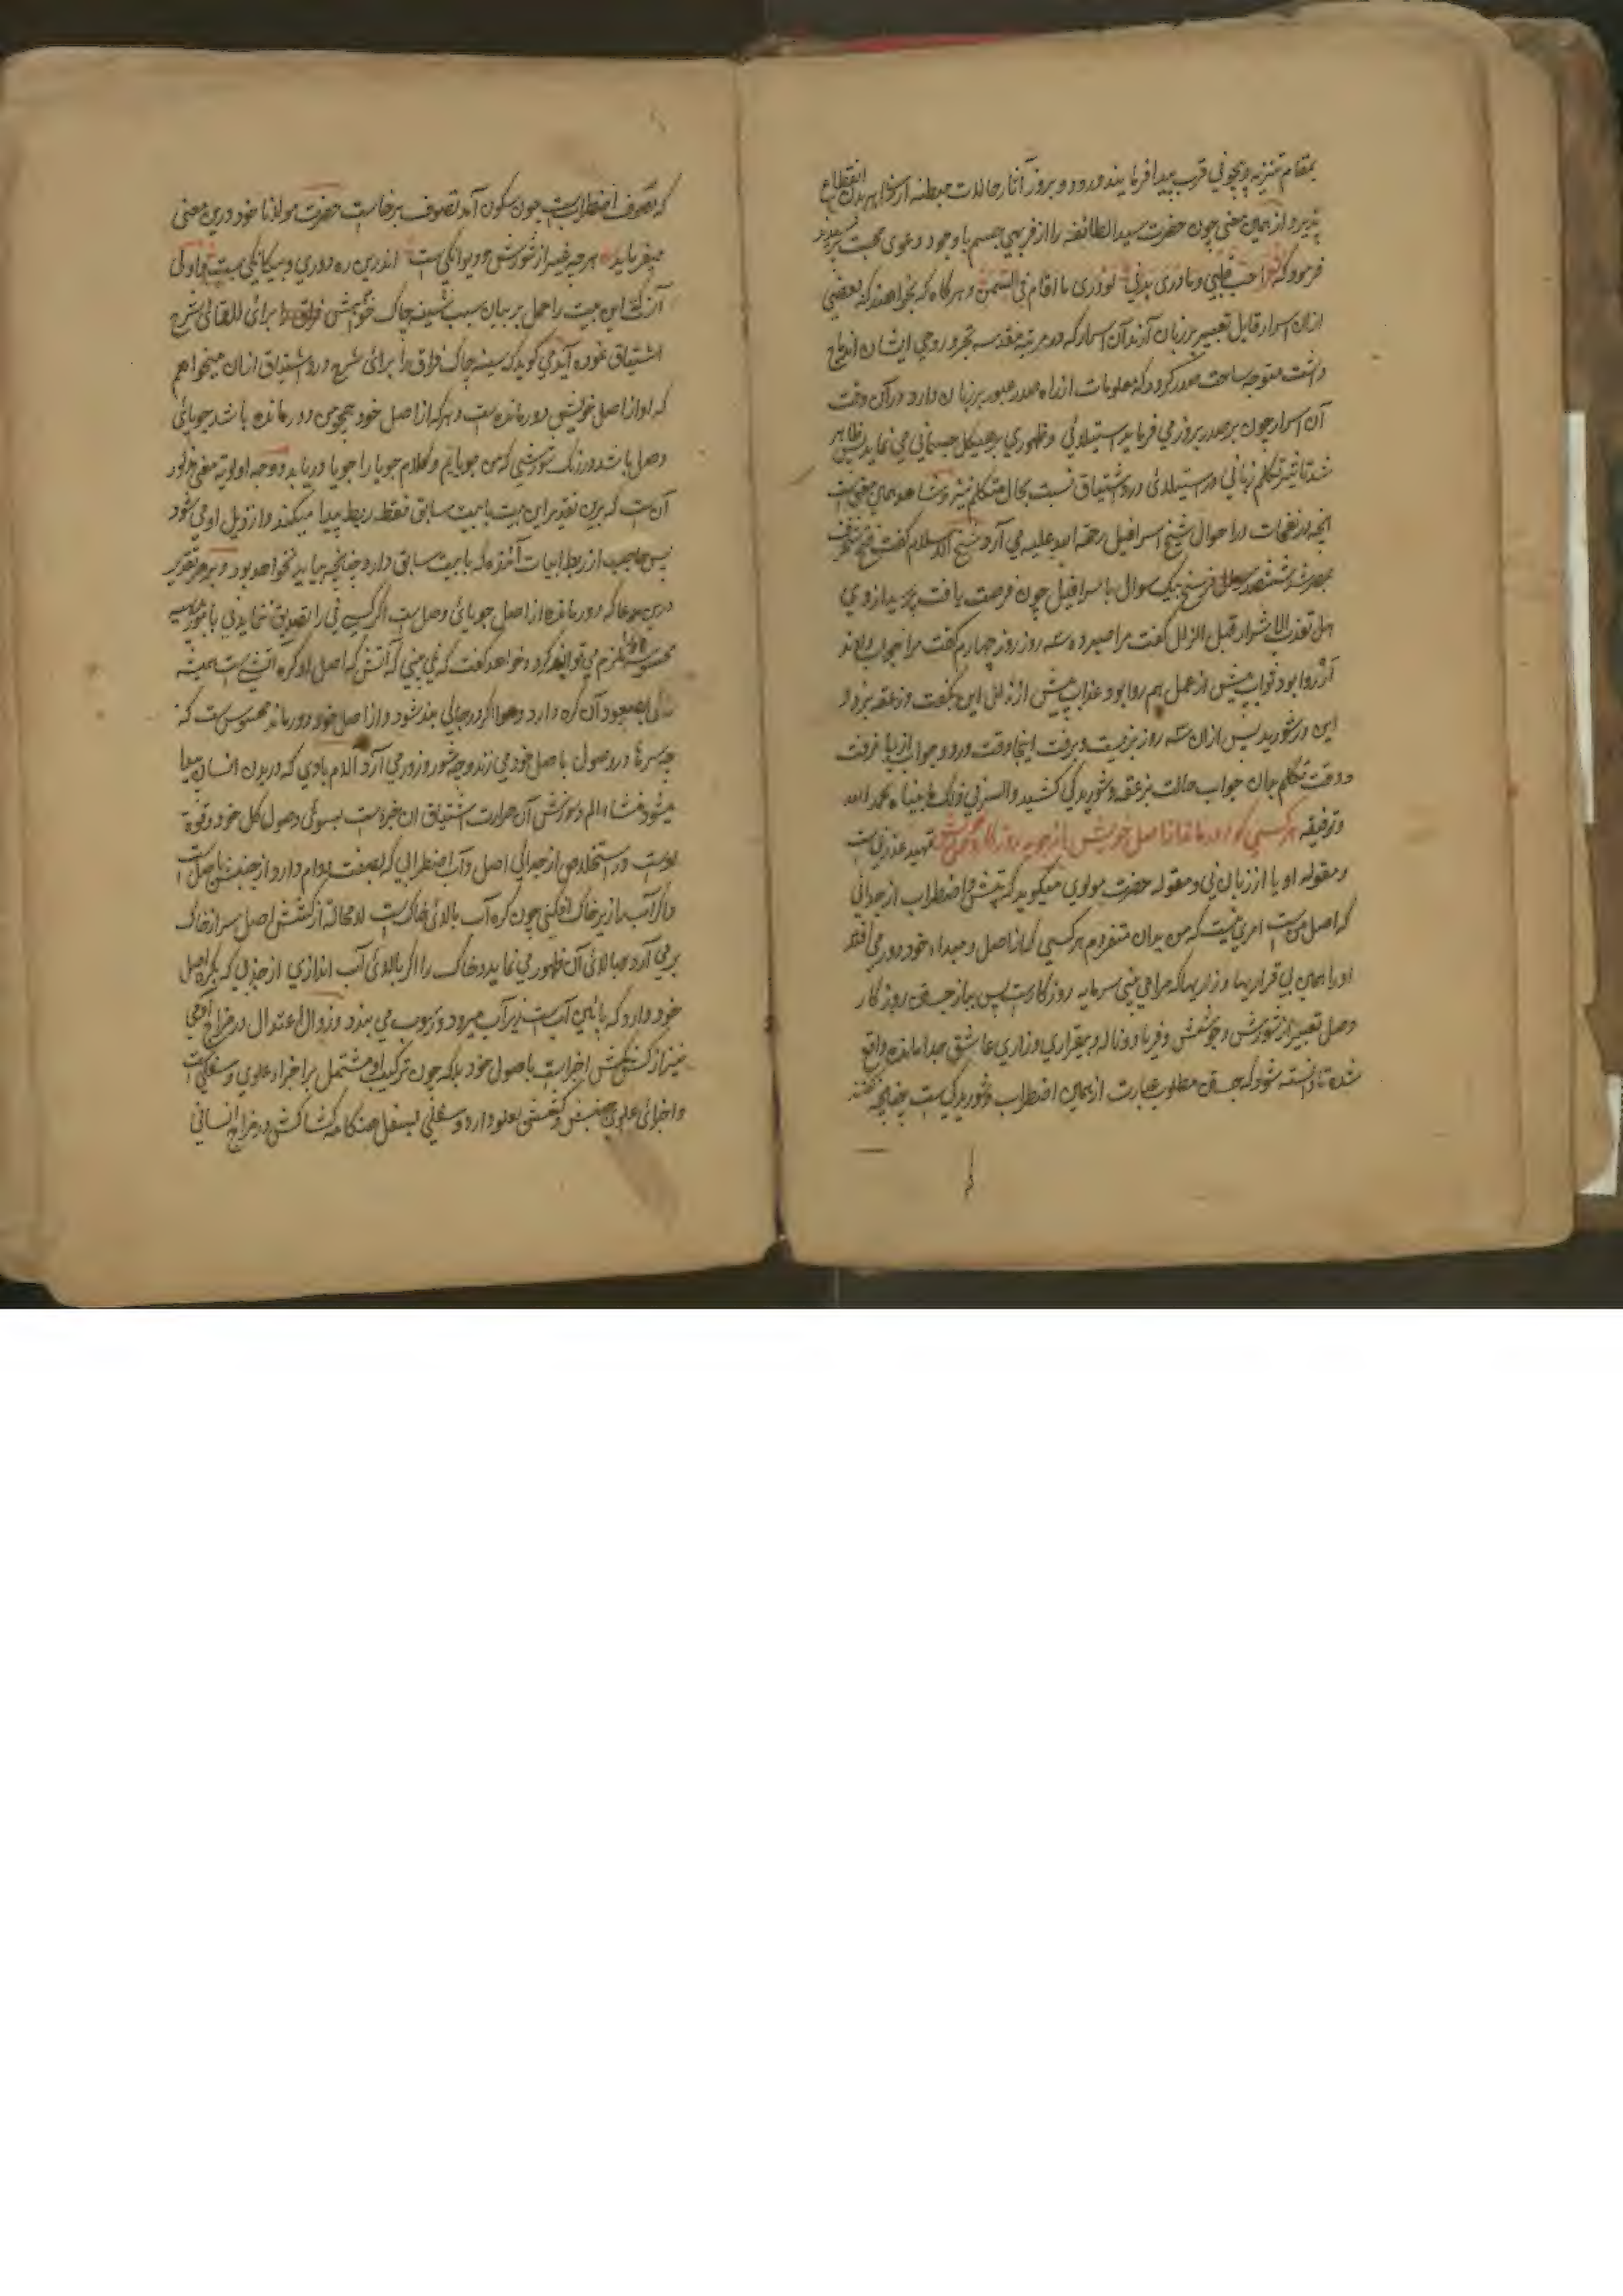 بمقام تنزیه و بیچونی قرب پیدا فرمایند ورود و بروز آثار حالات مبطنه از ظاهر بدن انقطاع
پذیرد از همین معنی چون حضرت سید الطائفه را از فربهی جسم با وجود دعوی محبت
فرمود که احب قلبی و ما دری بدنی ولو دری ما اقام فی السمن و هرگاه که بخواهند که بعضی
ازان اسرار قابل تعبیر بر زبان آرند آن اسرار که در مرتبه مقدسه تجرد روحی ایشان اندماج
داشت متوجه ساحت صدر گردد که معلومات از راه صدر عبور بر زبان دارد و در آن وقت
آن اسرار چون بر صدر بروز می فرماید استیلائی و ظهوری بر هیکل جسمانی می نماید پس ظاهر
شد تاثیر تکلم زبانی در استیلائی درد اشتیاق نسبت بحال متکلم نیز و شاهد همین معنی است
انچه در نفحات در احوال شیخ اسرافیل رحمة الله علیه می آرد شیخ الاسلام گفت فتح شخرف
بمصر شد ششصد فرسنگ بیک سوال باسرافیل چون فرصت یافت پرسید از وی
هل تعذب الاشرار قبل الزلل گفت مرا صبر ده سه روز روز چهارم گفت مرا جواب دادند
اگر روا بود ثواب پیش از عمل هم روا بود عذاب پیش از زلل این بگفت و زعقه بزد و
این در شورید پس ازان سه روز بزیست و برفت اینجا وقت ورود جواب از پا نرفت
و وقت تکلم جان جواب حالت بزعقه و شوریدگی کشید و السر فی ذلک ما بیناه بحمد الله
و توفیقه هر کسی کو دور ماند از اصل خویش باز جوید روزگار وصل خویش تمهید عذر نی است
و مقوله او یا از زبان نی و مقوله حضرت مولوی میگوید که تپش و اضطراب از جدائی
که اصل من است امری نیست که من بدان متفردم هر کسی که از اصل و مبداء خود دور می افتد
او را همین بی قراریها و زاریها که مرا می بینی سرمایه روزگار است پس بباز جستن روزگار
وصل تعبیر از شورش و جوشش و فریاد و ناله و بیقراری و زاری عاشق جدا مانده واقع
شده تا دانسته شود که جستن مطلوب عبارت از همین اضطراب و شوریدگی است چنانچه گفتند
که تصوف اضطراب است چون سکون آمد تصوف برخاست حضرت مولانا خود درین معنی
میفرماید هر چه غیر از شورش و دیوانگی ست اندرین ره دوری و بیگانگی ست و اولی
آنکه این بیت را حمل بر بیان سبب سینه چاک خواهش فراق را برای القائی شرح
اشتیاق نموده آید می گوید که سینه چاک فراق را برای شرح درد اشتیاق ازان میخواهم
که او از اصل خویش دور مانده است و هر که از اصل خود همچو من دور مانده باشد جویائی
وصل باشد در رنگ شورشی که من جویایم و کلام جویا را جویا دریابد و وجه اولویة معنی مذکور
آن ست که برین تقدیر این بیت با بیت سابق فقط ربط پیدا میکند و از ذیل او می شود
پس حاجب از ربط ابیات آئنده که با بیت سابق دارد چنانچه بیاید نخواهد بود و بر هر تقدیر
درین مدعا که دور مانده از اصل جویائی وصل است اگر کسی نی را تصدیق ننماید نی بامور
محسوسه ملزم می تواند کرد و خواهد گفت که نمی بینی که آتش که اصل او کره آتش است همیشه
صعود آن کره دارد و هوا اگر در جائی بند شود و از اصل خود دور ماند محسوس ست که
چه سرها در وصول باصل خود می زند و چه شور و زور می آرد آلام بادی که در بدن انسان پیدا
میشود منشاء الم و سوزش آن حرارت اشتیاق ان جزء ست بسوئی وصول کل خود و قوة
اوست در استخلاص از جدائی اصل و آب اضطرابی که بصفت دوام دارد از جنبش باصل است
و اگر آب را زیر خاک افکنی چون کره آب بالائی خاک ست لا محاله از کشش اصل سر از خاک
برمی آرد و ببالائی آن ظهور می نماید و خاک را اگر بالائی آب اندازی از جذبی که بکره اصل
خود دارد که پائین آب ست زیر آب میرود و رسوب می بندد و زوال اعتدال در مزاج آدمی
نیز از کشمکش اجزا ست باصول خود بلکه چون ترکیب او مشتمل بر اجزاء علوی و سفلی است
و اجزائی علوی جنبش و کشش بعلو دارد و سفلی بسفل هنگامه کشاکش در مزاج انسانی